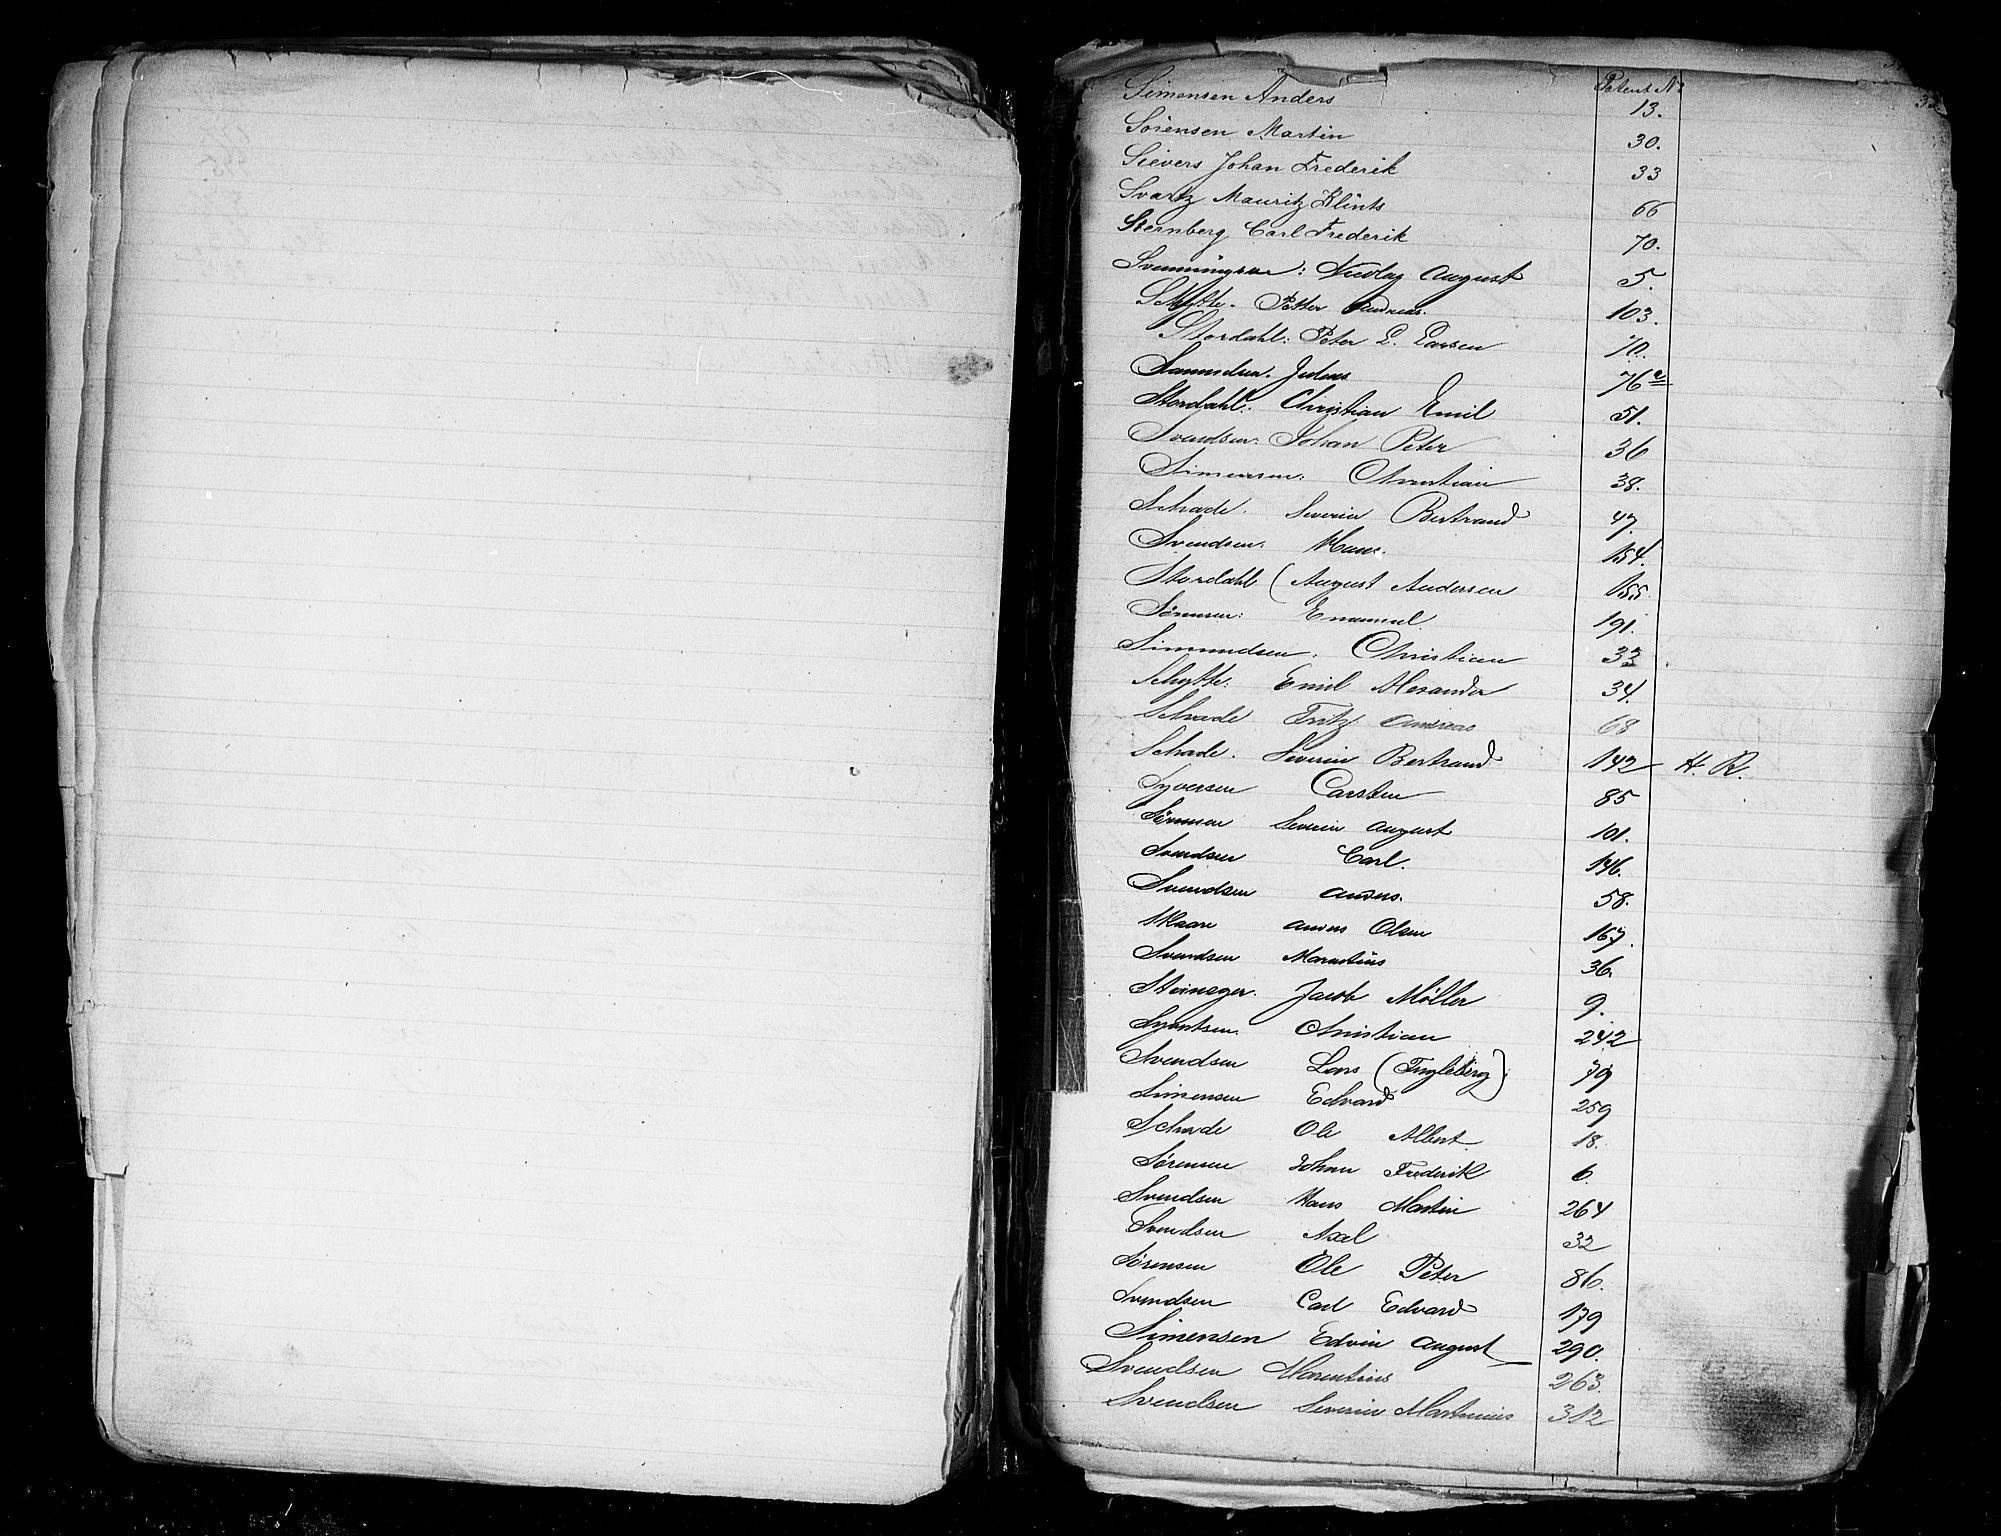 Patent No
32
Simensen Anders 13.
Sørensen Martin 30.
Sievers Johan Frederik 33
Svartz Mauritz Klints 66
Sternberg Carl Frederik 70.
Svenningsen: Nicolay August 5.
Schytte. Petter Andreas. 103.
Stordahl: Peter E. Larsen 70.
Samuelsen. Julius 76 a
Stordahl: Christian Emil 51.
Svendsen: Johan Peter 36
Simensen: Christian 38.
Schade. Severin Bertrand 47.
Svendsen: Hans. 154.
Stordahl (August Andersen 155.
Sørensen: Emanuel 191.
Simundsen. Christian 33
Schytte: Emil Alexander 34.
Schade Fritz Andreas 68
Schade. Severin Bertrand 142 H. R.
Syversen Carsten 85
Sørensen Severin August 101.
Svendsen Carl. 146.
Svendsen Anders. 58.
Skaar Anders Olsen 167.
Svendsen Marentius 36.
Steineger. Jacob Møller 9.
Syvertsen. Christian 242
Svendsen Lars (Ingleberg). 79
Simensen Edvard 259
Schade Ole Albert 18.
Sørensen Johan Frederik 6.
Svendsen Hans Martin 264
Svendsen Axel 32
Sørensen Ole Peter 86.
Svendsen Carl Edvard 179
Simensen Edvin August 290.
Svendsen Marentius 263.
Svendsen Severin Martinius 312